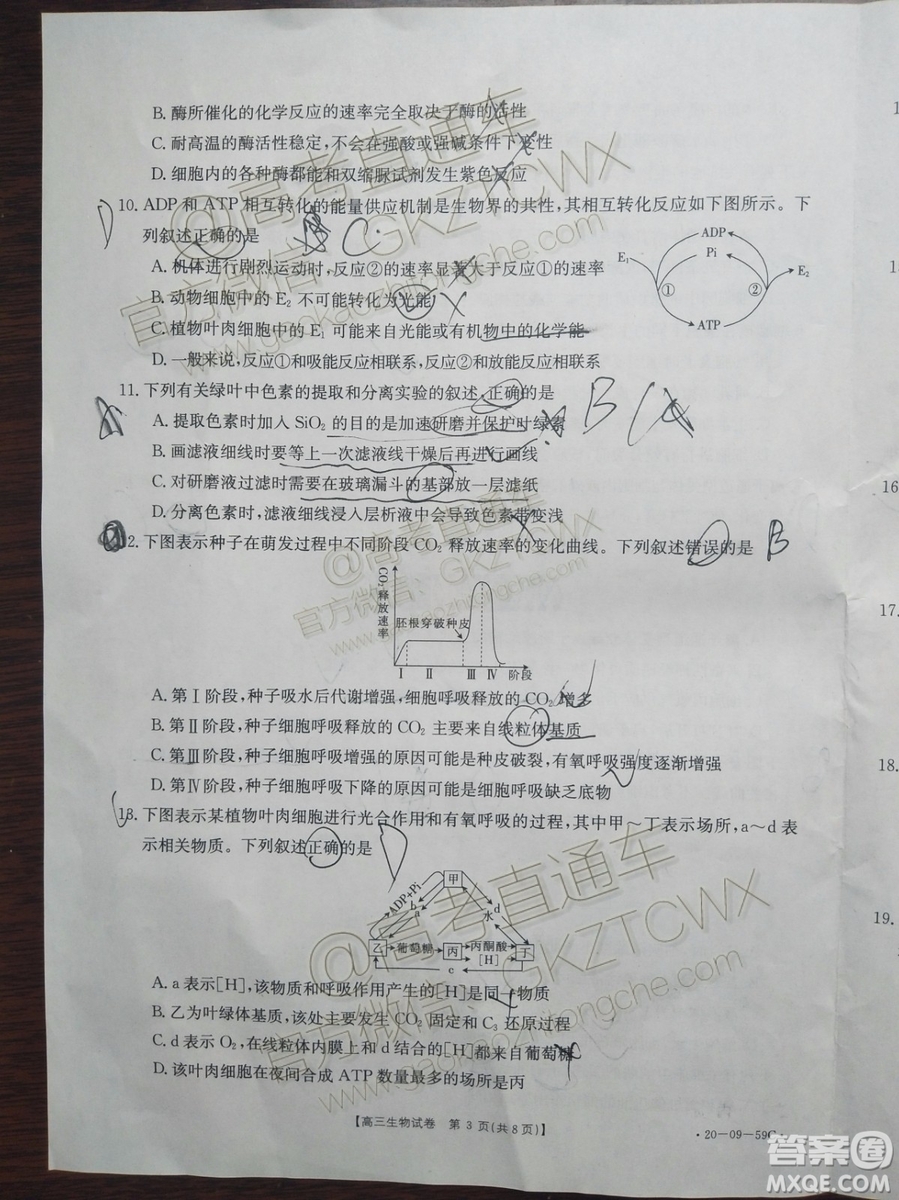 B. 酶所催化的化学反应的速率完全取决于酶的活性
C. 耐高温的酶活性稳定,不会在强酸或强碱条件下变性
D. 细胞内的各种酶都能和双缩脲试剂发生紫色反应
10. ADP 和 ATP 相互转化的能量供应机制是生物界的共性,其相互转化反应如下图所示。下
列叙述正确的是
C
A. 机体进行剧烈运动时,反应②的速率显著大于反应①的速率
B. 动物细胞中的 E₂ 不可能转化为光能
C. 植物叶肉细胞中的 E₁ 可能来自光能或有机物中的化学能
D. 一般来说,反应①和吸能反应相联系,反应②和放能反应相联系
ADP
E₁
Pi
E₂
①
②
ATP
11. 下列有关绿叶中色素的提取和分离实验的叙述,正确的是
B
A. 提取色素时加入 SiO₂ 的目的是加速研磨并保护叶绿素
B. 画滤液细线时要等上一次滤液线干燥后再进行画线
C. 对研磨液过滤时需要在玻璃漏斗的基部放一层滤纸
D. 分离色素时,滤液细线浸入层析液中会导致色素带变浅
12. 下图表示种子在萌发过程中不同阶段 CO₂ 释放速率的变化曲线。下列叙述错误的是
B
CO₂释放速率
胚根穿破种皮
Ⅰ Ⅱ Ⅲ Ⅳ 阶段
A. 第Ⅰ阶段,种子吸水后代谢增强,细胞呼吸释放的 CO₂ 增多
B. 第Ⅱ阶段,种子细胞呼吸释放的 CO₂ 主要来自线粒体基质
C. 第Ⅲ阶段,种子细胞呼吸增强的原因可能是种皮破裂,有氧呼吸强度逐渐增强
D. 第Ⅳ阶段,种子细胞呼吸下降的原因可能是细胞呼吸缺乏底物
13. 下图表示某植物叶肉细胞进行光合作用和有氧呼吸的过程,其中甲~丁表示场所,a~d 表
示相关物质。下列叙述正确的是
D
甲
ADP+Pi
b
a
d
水
乙
葡萄糖
丙
丙酮酸
[H]
丁
c
A. a 表示[H],该物质和呼吸作用产生的[H]是同一物质
B. 乙为叶绿体基质,该处主要发生 CO₂ 固定和 C₃ 还原过程
C. d 表示 O₂,在线粒体内膜上和 d 结合的[H]都来自葡萄糖
D. 该叶肉细胞在夜间合成 ATP 数量最多的场所是丙
【高三生物试卷 第 3 页(共 8 页)】
·20-09-59C·
1
15
16
17.
18.
19.
@高考直通车
官方微信:GKZTCWX
www.gaokaozhitongche.com
@高考直通车
官方微信:GKZTCWX
www.gaokaozhitongche.com
答案圈
MXQE.COM